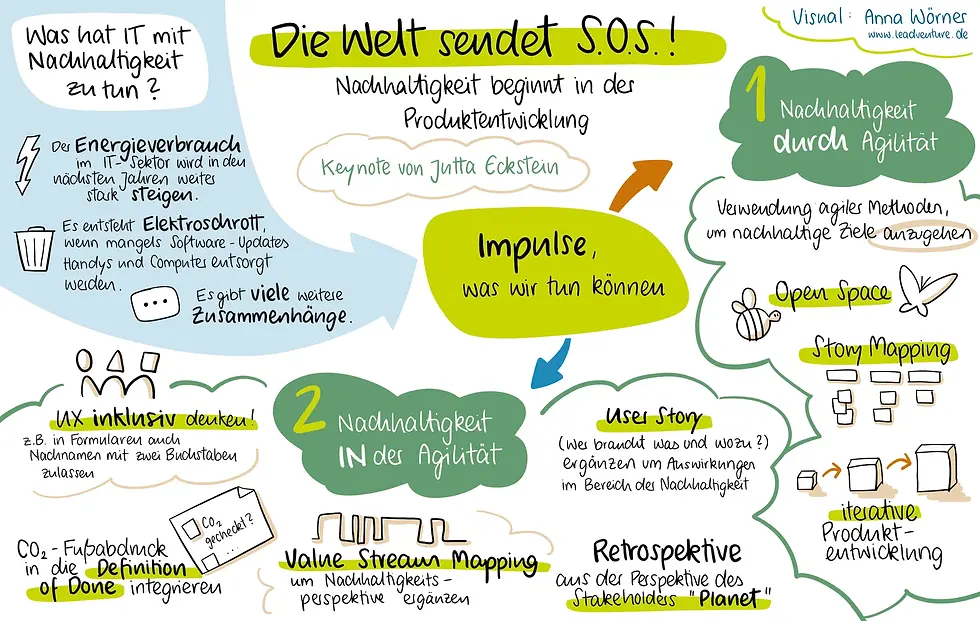 Was hat IT mit
Nachhaltigkeit
zu tun?
Die Welt sendet S.O.S.!
Nachhaltigkeit beginnt in der
Produktentwicklung
Keynote von Jutta Eckstein
Visual: Anna Wörner
www.leadventure.de
Der Energieverbrauch
im IT-Sektor wird in den
nächsten Jahren weiter
stark steigen.
Es entsteht Elektroschrott,
wenn mangels Software-Updates
Handys und Computer entsorgt
werden.
Es gibt viele weitere
Zusammenhänge.
Impulse,
was wir tun können
1 Nachhaltigkeit
durch Agilität
Verwendung agiler Methoden,
um nachhaltige Ziele anzugehen
Open Space
Story Mapping
iterative
Produkt-
entwicklung
2 Nachhaltigkeit
IN der Agilität
UX inklusiv denken!
z.B. in Formularen auch
Nachnamen mit zwei Buchstaben
zulassen
CO₂ gecheckt?
...
CO₂-Fußabdruck
in die Definition
of Done integrieren
Value Stream Mapping
um Nachhaltigkeits-
perspektive ergänzen
User Story
(Wer braucht was und wozu?)
ergänzen um Auswirkungen
im Bereich der Nachhaltigkeit
Retrospektive
aus der Perspektive des
Stakeholders "Planet"